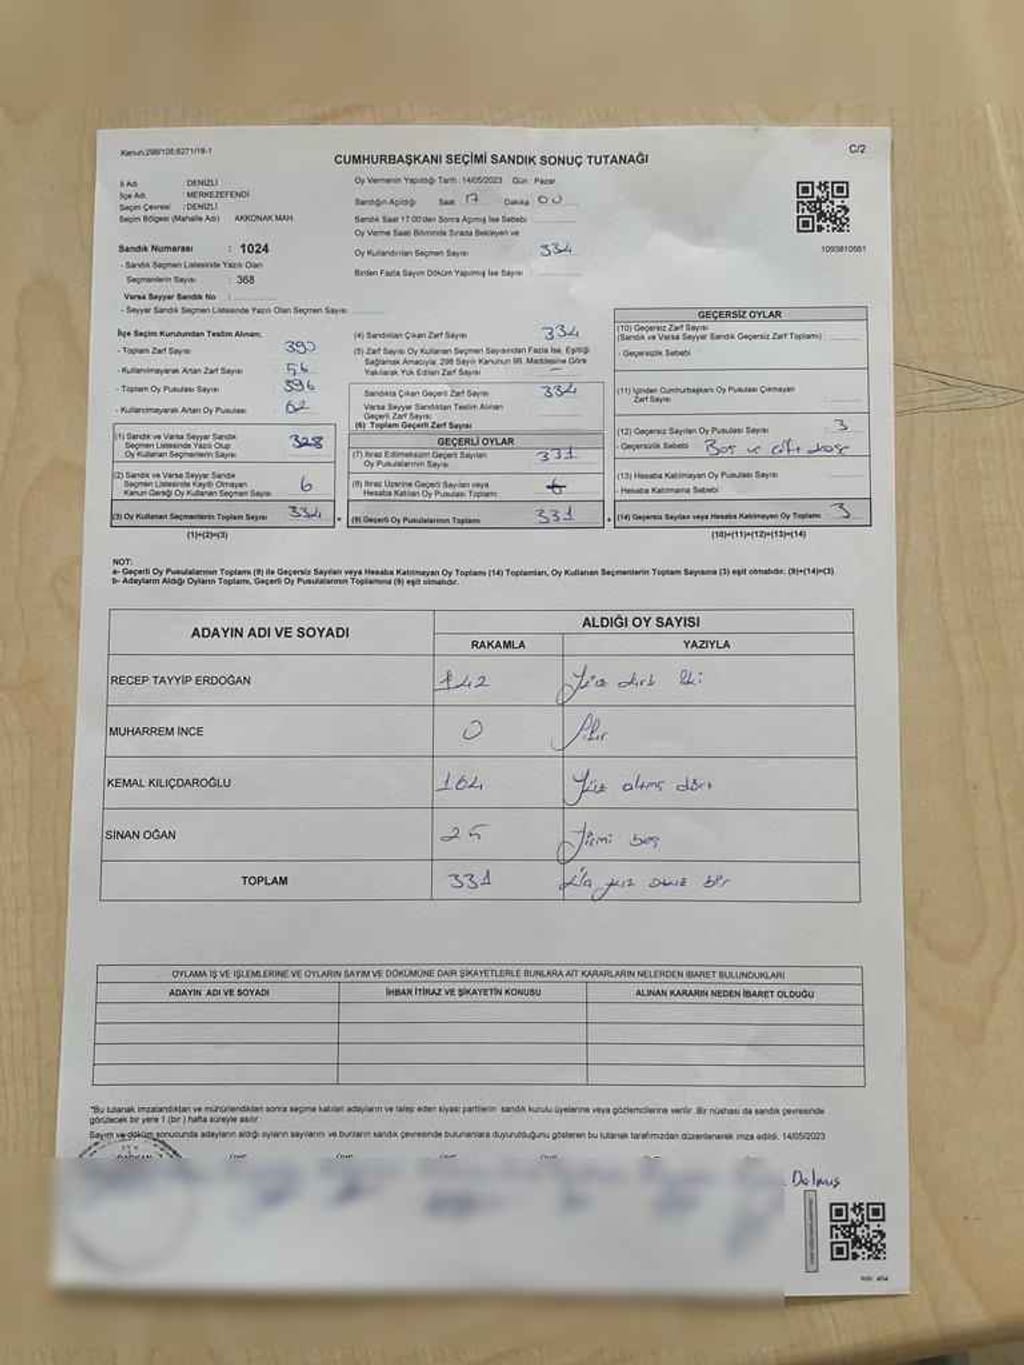 Kanun:298/105;6271/19-1
C/2
CUMHURBAŞKANI SEÇİMİ SANDIK SONUÇ TUTANAĞI
İl Adı : DENİZLİ
İlçe Adı : MERKEZEFENDİ
Seçim Çevresi : DENİZLİ
Seçim Bölgesi (Mahalle Adı) AKKONAK MAH.
Sandık Numarası : 1024
- Sandık Seçmen Listesinde Yazılı Olan
Seçmenlerin Sayısı : 368
Varsa Seyyar Sandık No :
- Seyyar Sandık Seçmen Listesinde Yazılı Olan Seçmen Sayısı:
Oy Vermenin Yapıldığı Tarih :14/05/2023 Gün: Pazar
Sandığın Açıldığı Saat 17 Dakika 00
Sandık Saat 17:00'den Sonra Açılmış İse Sebebi
Oy Verme Saati Bitiminde Sırada Bekleyen ve
Oy Kullandırılan Seçmen Sayısı 334
Birden Fazla Sayım Döküm Yapılmış İse Sayısı
1093810561
İlçe Seçim Kurulundan Teslim Alınan;
- Toplam Zarf Sayısı 390
- Kullanılmayarak Artan Zarf Sayısı 56
- Toplam Oy Pusulası Sayısı 396
- Kullanılmayarak Artan Oy Pusulası 62
(1) Sandık ve Varsa Seyyar Sandık
Seçmen Listesinde Yazılı Olup
Oy Kullanan Seçmenlerin Sayısı 328
(2) Sandık ve Varsa Seyyar Sandık
Seçmen Listesinde Kayıtlı Olmayan
Kanun Gereği Oy Kullanan Seçmen Sayısı 6
(3) Oy Kullanan Seçmenlerin Toplam Sayısı 334
(1)+(2)=(3)
(4) Sandıktan Çıkan Zarf Sayısı 334
(5) Zarf Sayısı Oy Kullanan Seçmen Sayısından Fazla İse, Eşitliği
Sağlamak Amacıyla, 298 Sayılı Kanunun 98. Maddesine Göre
Yakılarak Yok Edilen Zarf Sayısı –
Sandıkta Çıkan Geçerli Zarf Sayısı 334
Varsa Seyyar Sandıktan Teslim Alınan
Geçerli Zarf Sayısı
(6) Toplam Geçerli Zarf Sayısı
GEÇERLİ OYLAR
(7) İtiraz Edilmeksizin Geçerli Sayılan
Oy Pusulalarının Sayısı 331
(8) İtiraz Üzerine Geçerli Sayılan veya
Hesaba Katılan Oy Pusulası Toplamı
= (9) Geçerli Oy Pusulalarının Toplamı 331
GEÇERSİZ OYLAR
(10) Geçersiz Zarf Sayısı
(Sandık ve Varsa Seyyar Sandık Geçersiz Zarf Toplamı)
- Geçersizlik Sebebi
(11) İçinden Cumhurbaşkanı Oy Pusulası Çıkmayan
Zarf Sayısı
(12) Geçersiz Sayılan Oy Pusulası Sayısı 3
- Geçersizlik Sebebi Boş ve çift
(13) Hesaba Katılmayan Oy Pusulası Sayısı
- Hesaba Katılmama Sebebi
+ (14) Geçersiz Sayılan veya Hesaba Katılmayan Oy Toplamı 3
(10)+(11)+(12)+(13)=(14)
NOT:
a- Geçerli Oy Pusulalarının Toplamı (9) ile Geçersiz Sayılan veya Hesaba Katılmayan Oy Toplamı (14) Toplamları, Oy Kullanan Seçmenlerin Toplam Sayısına (3) eşit olmalıdır. (9)+(14)=(3)
b- Adayların Aldığı Oyların Toplamı, Geçerli Oy Pusulalarının Toplamına (9) eşit olmalıdır.
ADAYIN ADI VE SOYADI ALDIĞI OY SAYISI
RAKAMLA YAZIYLA
RECEP TAYYİP ERDOĞAN 142 Yüz kırk iki
MUHARREM İNCE 0 Sıfır
KEMAL KILIÇDAROĞLU 164 Yüz altmış dört
SİNAN OĞAN 25 Yirmi beş
TOPLAM 331 Üç yüz otuz bir
OYLAMA İŞ VE İŞLEMLERİNE VE OYLARIN SAYIM VE DÖKÜMÜNE DAİR ŞİKAYETLERLE BUNLARA AİT KARARLARIN NELERDEN İBARET BULUNDUKLARI
ADAYIN ADI VE SOYADI İHBAR İTİRAZ VE ŞİKAYETİN KONUSU ALINAN KARARIN NEDEN İBARET OLDUĞU
*Bu tutanak imzalandıktan ve mühürlendikten sonra seçime katılan adayların ve talep eden siyasi partilerin sandık kurulu üyelerine veya gözlemcilerine verilir. Bir nüshası da sandık çevresinde
görülecek bir yere 1 (bir) hafta süreyle asılır.
Sayım ve döküm sonucunda adayların aldığı oyların sayılarını ve bunların sandık çevresinde bulunanlara duyurulduğunu gösteren bu tutanak tarafımızdan düzenlenerek imza edildi. 14/05/2023
BAŞKAN
Dolmuş